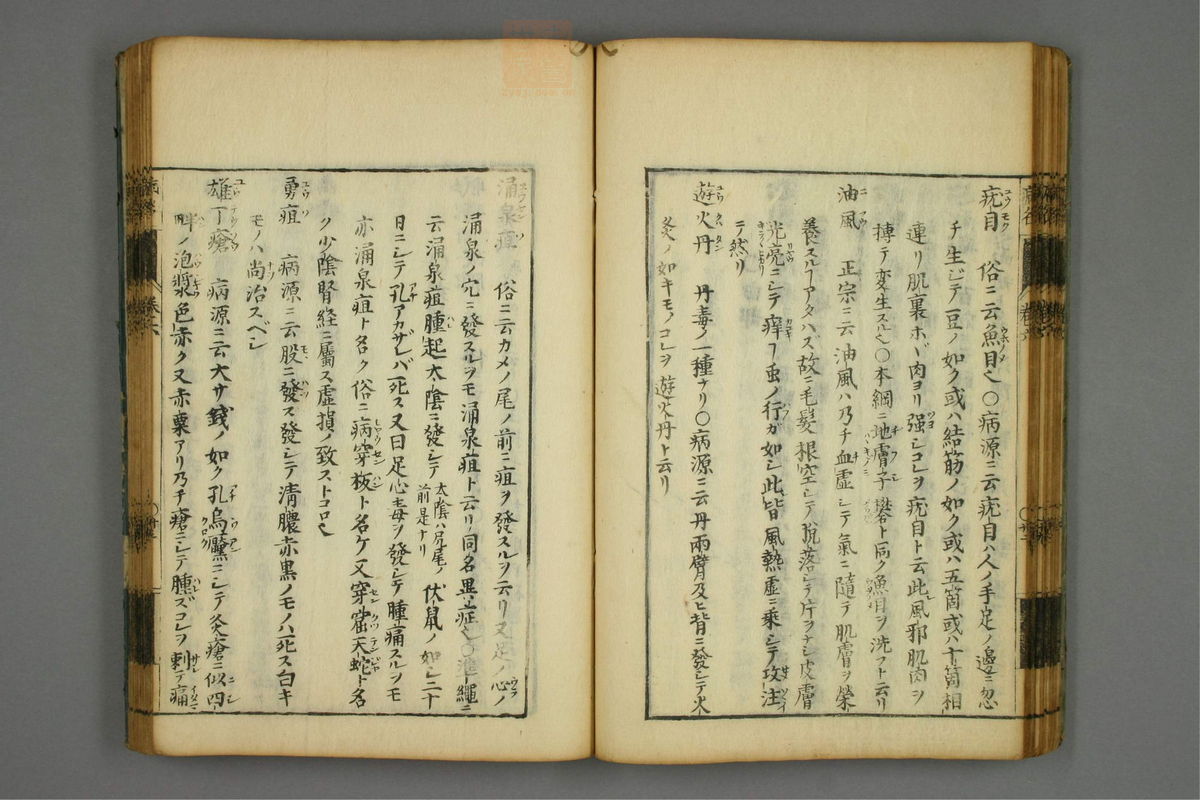 疣目 俗ニ云魚目也〇病源ニ云疣目ハ人ノ手足ノ邊ニ忽
チ生ジテ豆ノ如ク或ハ結筋ノ如ク或ハ五箇或ハ十箇相
連リ肌裏ホヾ肉ヨリ强シコレヲ疣目ト云此風邪肌肉ヲ
搏テ変生スル也〇本綱ニ地膚子礬ト同ク魚目ヲ洗フト云リ
油風 正宗ニ云油風ハ乃チ血虛シテ氣ニ隨テ肌膚ヲ榮
養スルヿアタハズ故ニ毛髮根空シテ脫落シテ片ヲナシ皮膚
光亮ニシテ痒ヿ虫ノ行ガ如シ此皆風熱虛ニ乘シテ攻注
ノ然リ
遊火丹 丹毒ノ一種ナリ〇病源ニ云丹兩臂及ヒ背ニ發シテ火
灸ノ如キモノコレヲ遊火丹ト云リ
涌泉疽 俗ニ云カメノ尾ノ前ニ疽ヲ發スルヲ云リ又足ノ心ノ
涌泉ノ穴ニ發スルヲモ涌泉疽ト云リ同名異症也〇準繩ニ
云涌泉疽腫起太陰ニ發シテ 太陰ハ尻尾ノ前是ナリ 伏鼠ノ如シ二十
日ニシテ孔アカザレバ死ス又曰足心毒ヲ發シテ腫痛スルヲモ
亦涌泉疽ト名ク俗ニ病穿板ト名ケ又穿窟天蛇ト名
ク少陰腎経ニ屬ス虛損ノ致ストコロ也
勇疽 病源ニ云股ニ發ス發シテ淸膿赤黒ノモノハ死ス白キ
モノハ尚治スベシ
雄丁瘡 病源ニ云大サ錢ノ如ク孔烏黶ニシテ灸瘡ニ似四
畔ノ泡漿色赤ク又赤粟アリ乃チ瘡ニシテ腫ズコレヲ刺テ痛